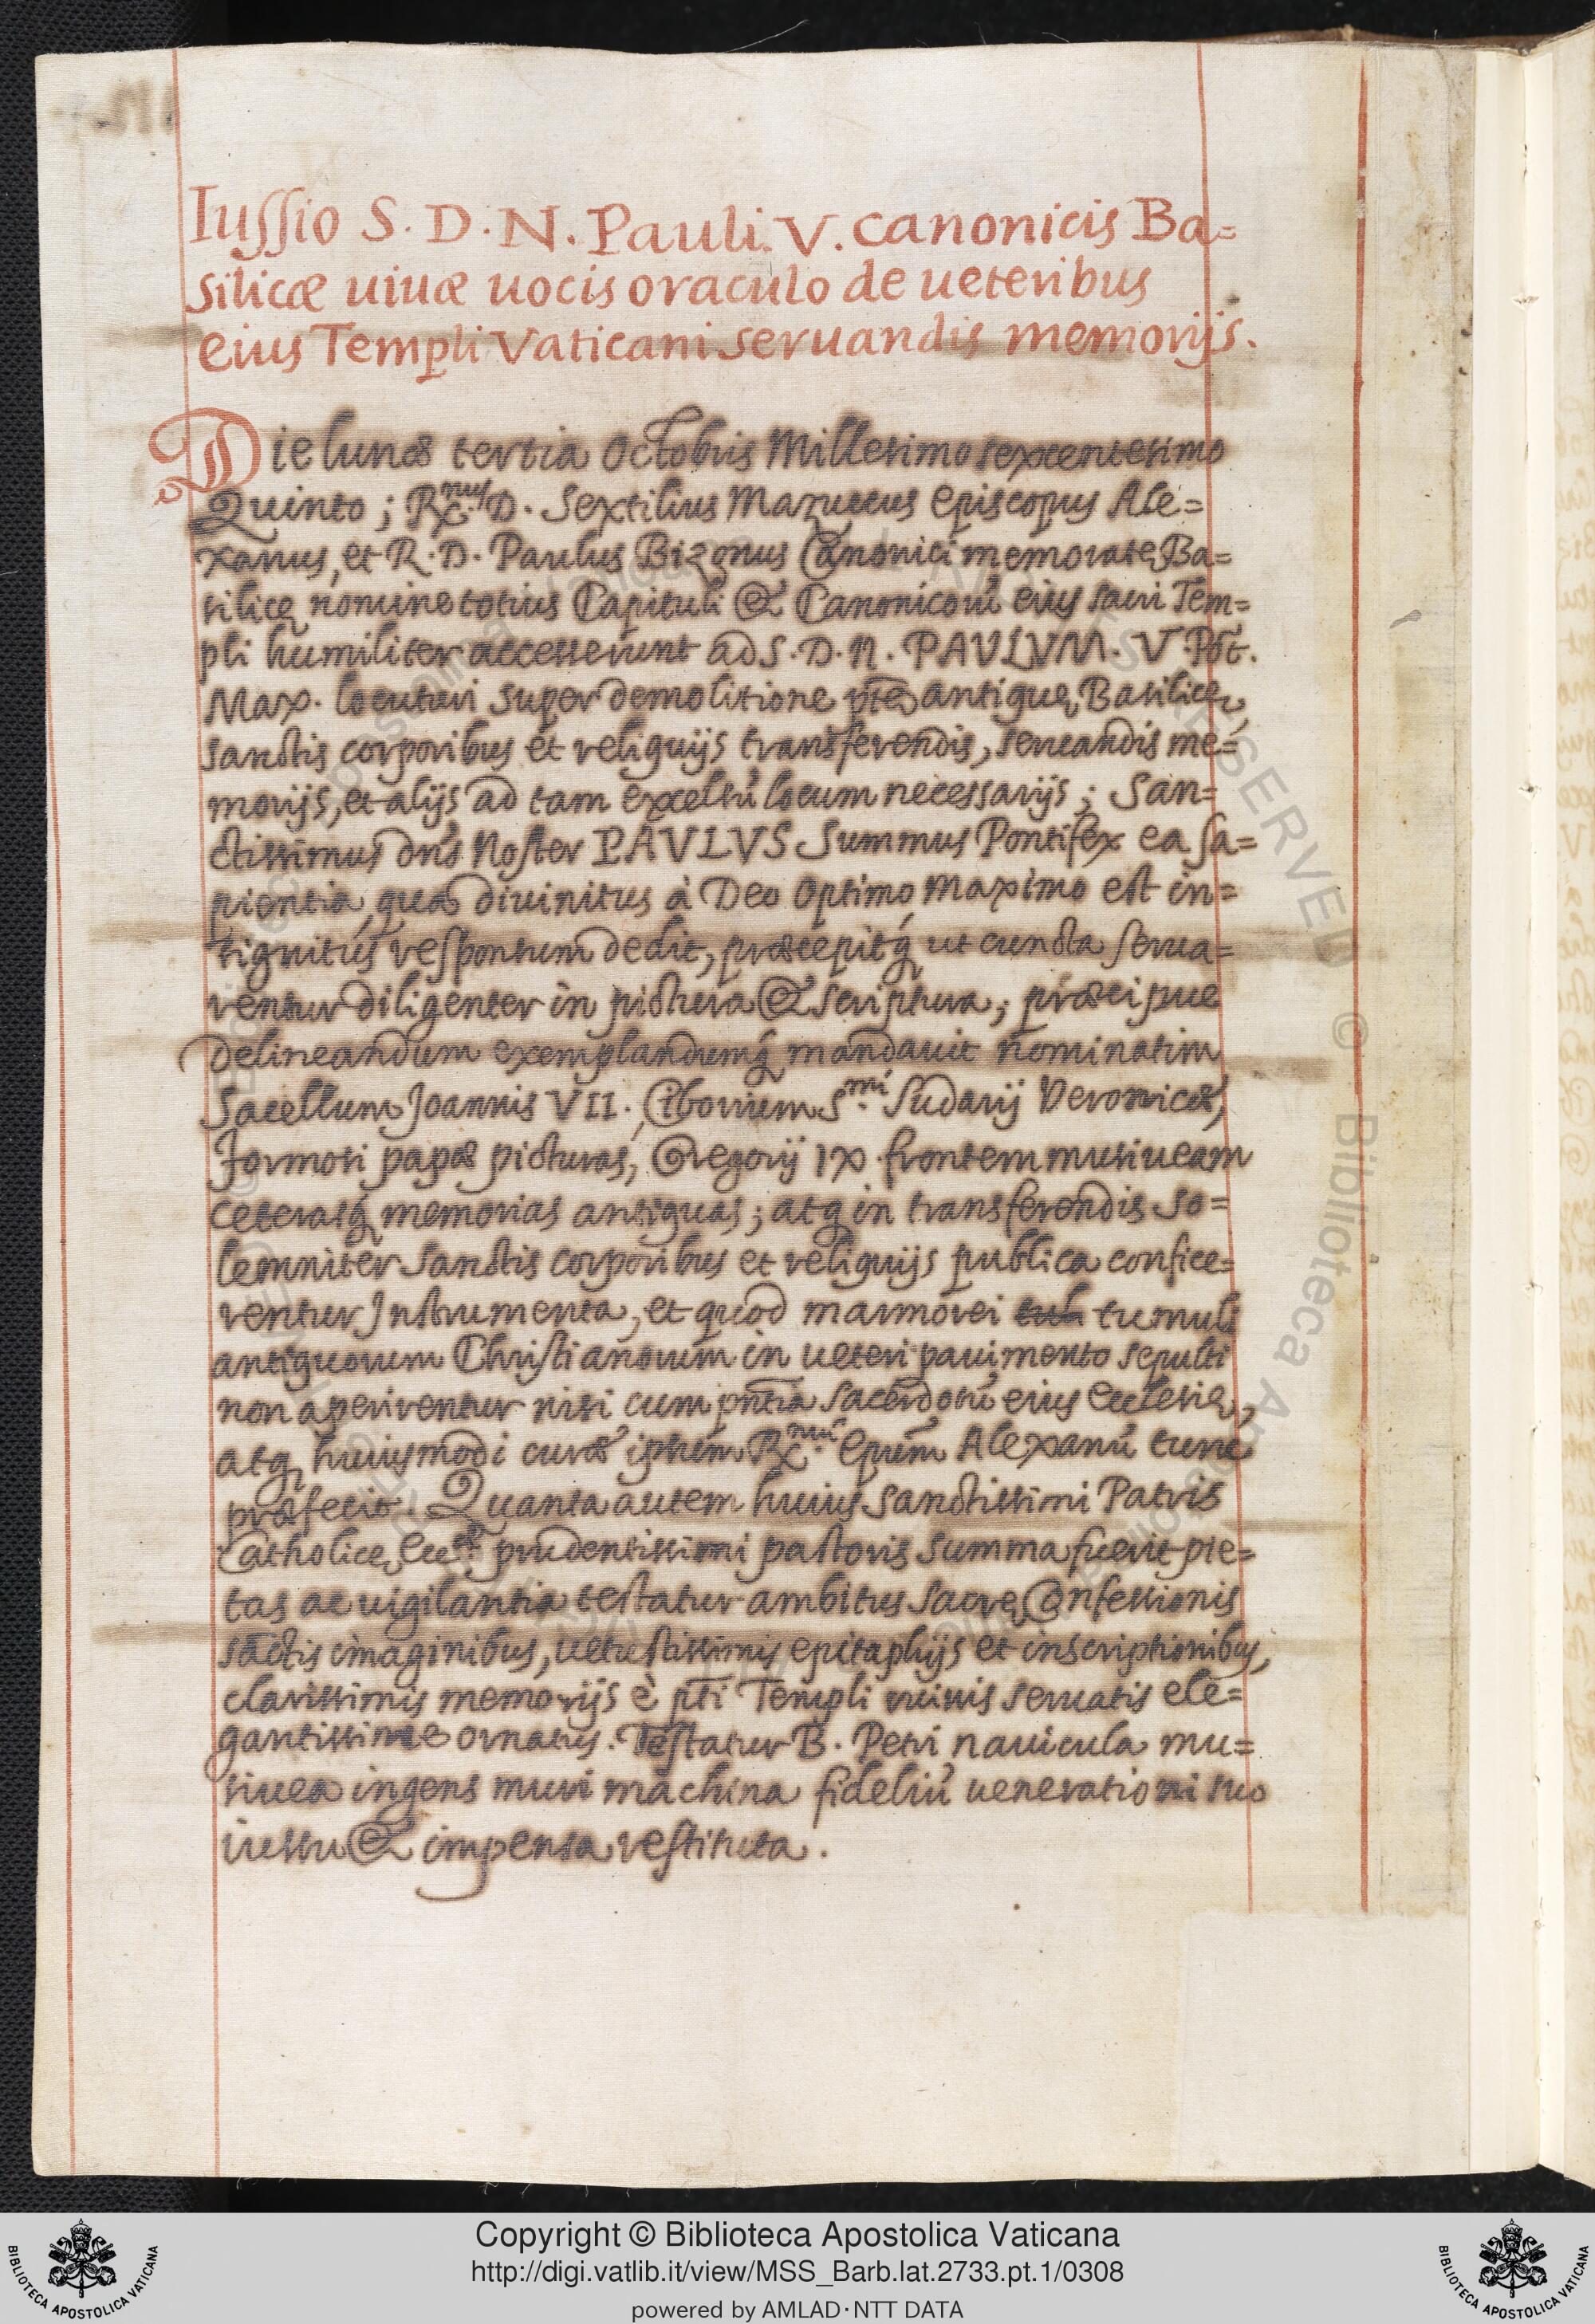 Iussio S. D. N. Pauli. V. canonicis Ba=
silicæ uiuæ uocis oraculo de ueteribus
eius Templi Vaticani seruandis memorijs.
Die lunæ tertia Octobris Millesimo sexcentesimo
Quinto; R.mus D. Sextilius Mazuccus episcopus Ale=
xanus, et R. D. Paulus Bizonus Canonici memoratę Ba=
silicę nomine totius Capituli & Canonicorũ eius sacri Tem=
pli humiliter accesserunt ad S. D. N. PAVLVM. V. Põt.
Max. locuturi super demolitione ptẽ antiquę Basilicę,
sanctis corporibus et reliquijs transferendis, seruandis me=
morijs, et alijs ad tam excelsũ locum necessarijs; San=
ctissimus dñs Noster PAVLVS Summus Pontifex ea sa=
pientia, qua diuinitus à Deo Optimo Maximo est in=
signitus responsum dedit, præcepitq́ ut cuncta serua=
rentur diligenter in pictura & scriptura; præcipue
delineandum exemplandumq́ mandauit nominatim
Sacellum Joannis VII. Ciborium S.mi Sudarij Veronicæ,
Formosi papæ picturas, Gregorij IX frontem musiueam
ceterasq́ memorias antiquas; atq in transferendis so=
lemniter sanctis corporibus et reliquijs publica confice=
rentur Instrumenta, et quod marmorei tuli tumuli
antiquorum Christianorum in ueteri pauimento sepulti
non aperirentur nisi cum pñtia sacerdotũ eius ecclesię,
atq huiusmodi curæ ipsum R.mũ Epũm Alexanũ tunc
præfecit. Quanta autem huius sanctissimi Patris
Catholicę Eccę prudentissimi pastoris summa fuerit pie=
tas ac uigilantia testatur ambitus sacrę Confessionis
sãctis imaginibus, uetustissimis epitaphijs et inscriptionibus,
clarissimis memorijs è pti Templi ruinis seruatis ele=
gantissime ornatus. Testatur B. Petri nauicula mu=
siuea ingens muri machina fideliũ uenerationi suo
iussu & impensa restituta.
Copyright © Biblioteca Apostolica Vaticana
http://digi.vatlib.it/view/MSS_Barb.lat.2733.pt.1/0308
powered by AMLAD·NTT DATA
BIBLIOTECA APOSTOLICA VATICANA
BIBLIOTECA APOSTOLICA VATICANA